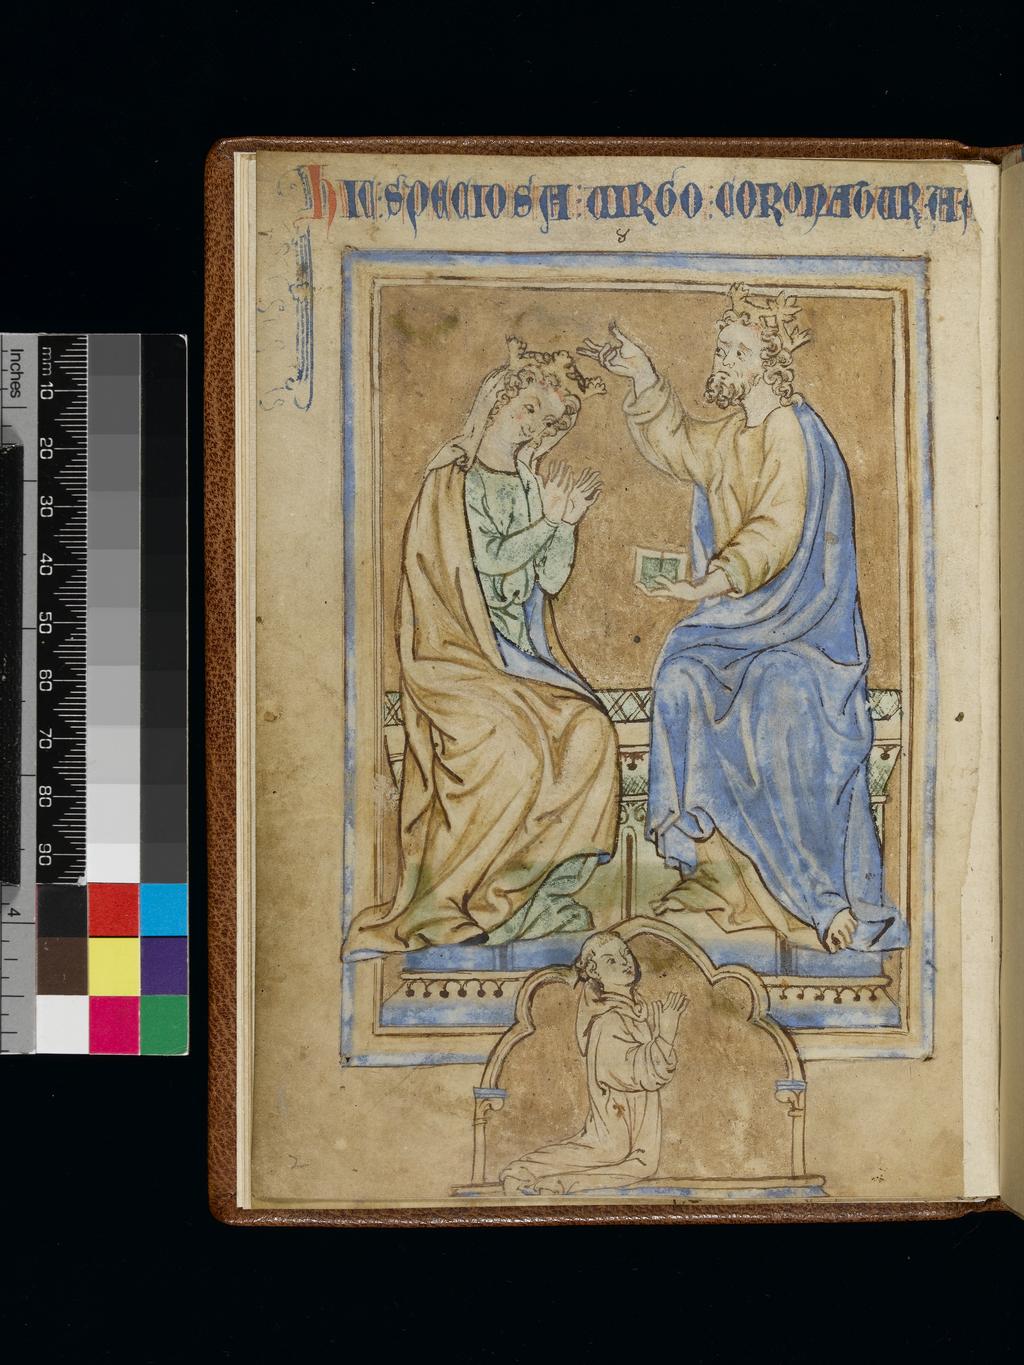 hIC : SPECIOSA : VIRGO : CORONATUR : A
8
2
Inches
4
mm 10
20
30
40
50
60
70
80
90